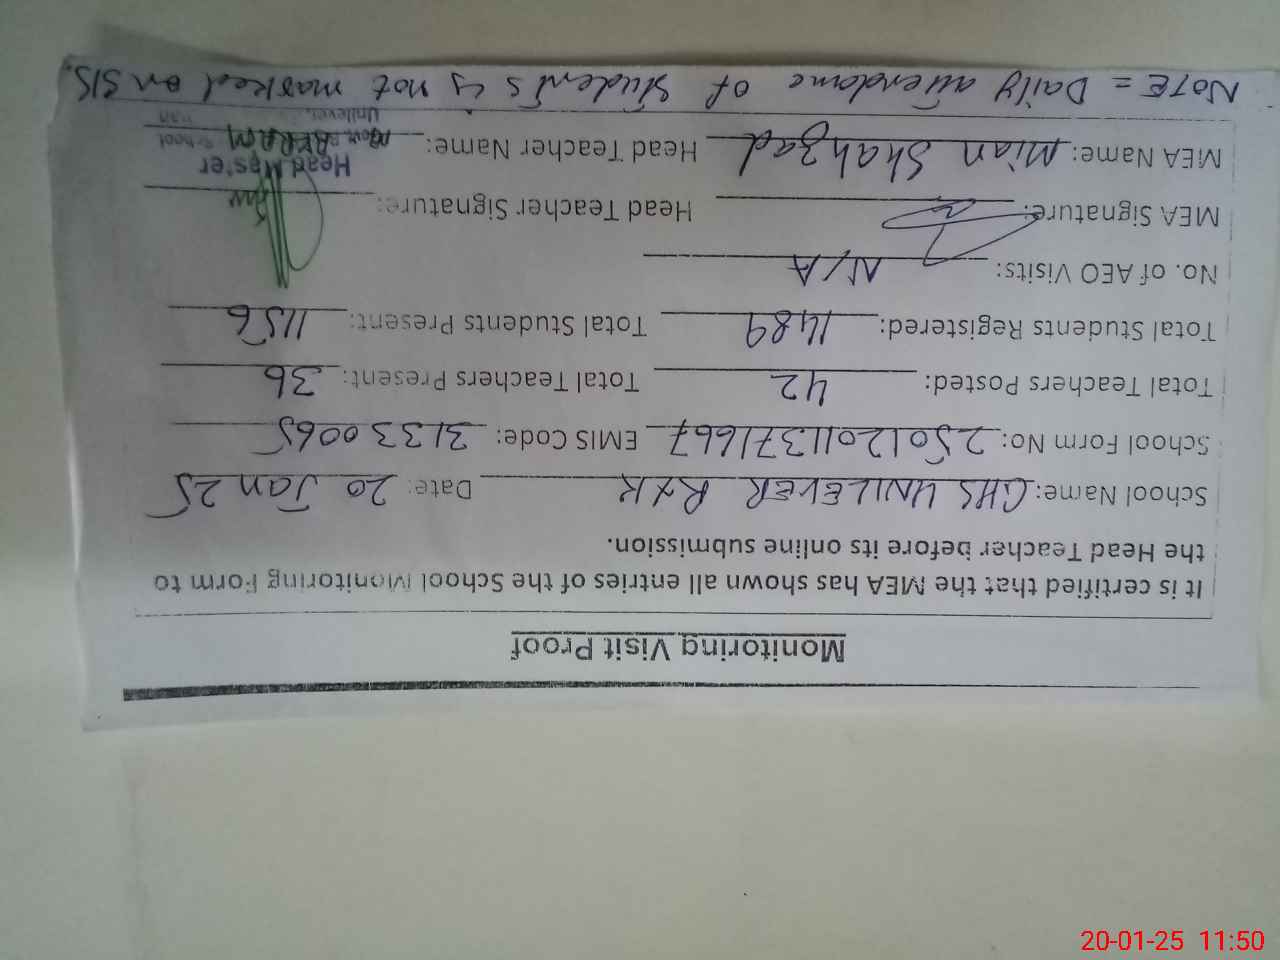 Monitoring Visit Proof
It is certified that the MEA has shown all entries of the School Monitoring Form to
the Head Teacher before its online submission.
School Name: GHS UNILEVER RYK Date: 20 Jan 25
School Form No: 25012011371667 EMIS Code: 31330065
Total Teachers Posted: 42 Total Teachers Present: 36
Total Students Registered: 1489 Total Students Present: 1156
No. of AEO Visits: N/A
MEA Signature: Head Teacher Signature:
MEA Name: Mian Shahzad Head Teacher Name: AKRAM
Head Master
School
Unilever
NOTE = Daily attendance of students is not marked on SIS.
20-01-25 11:50